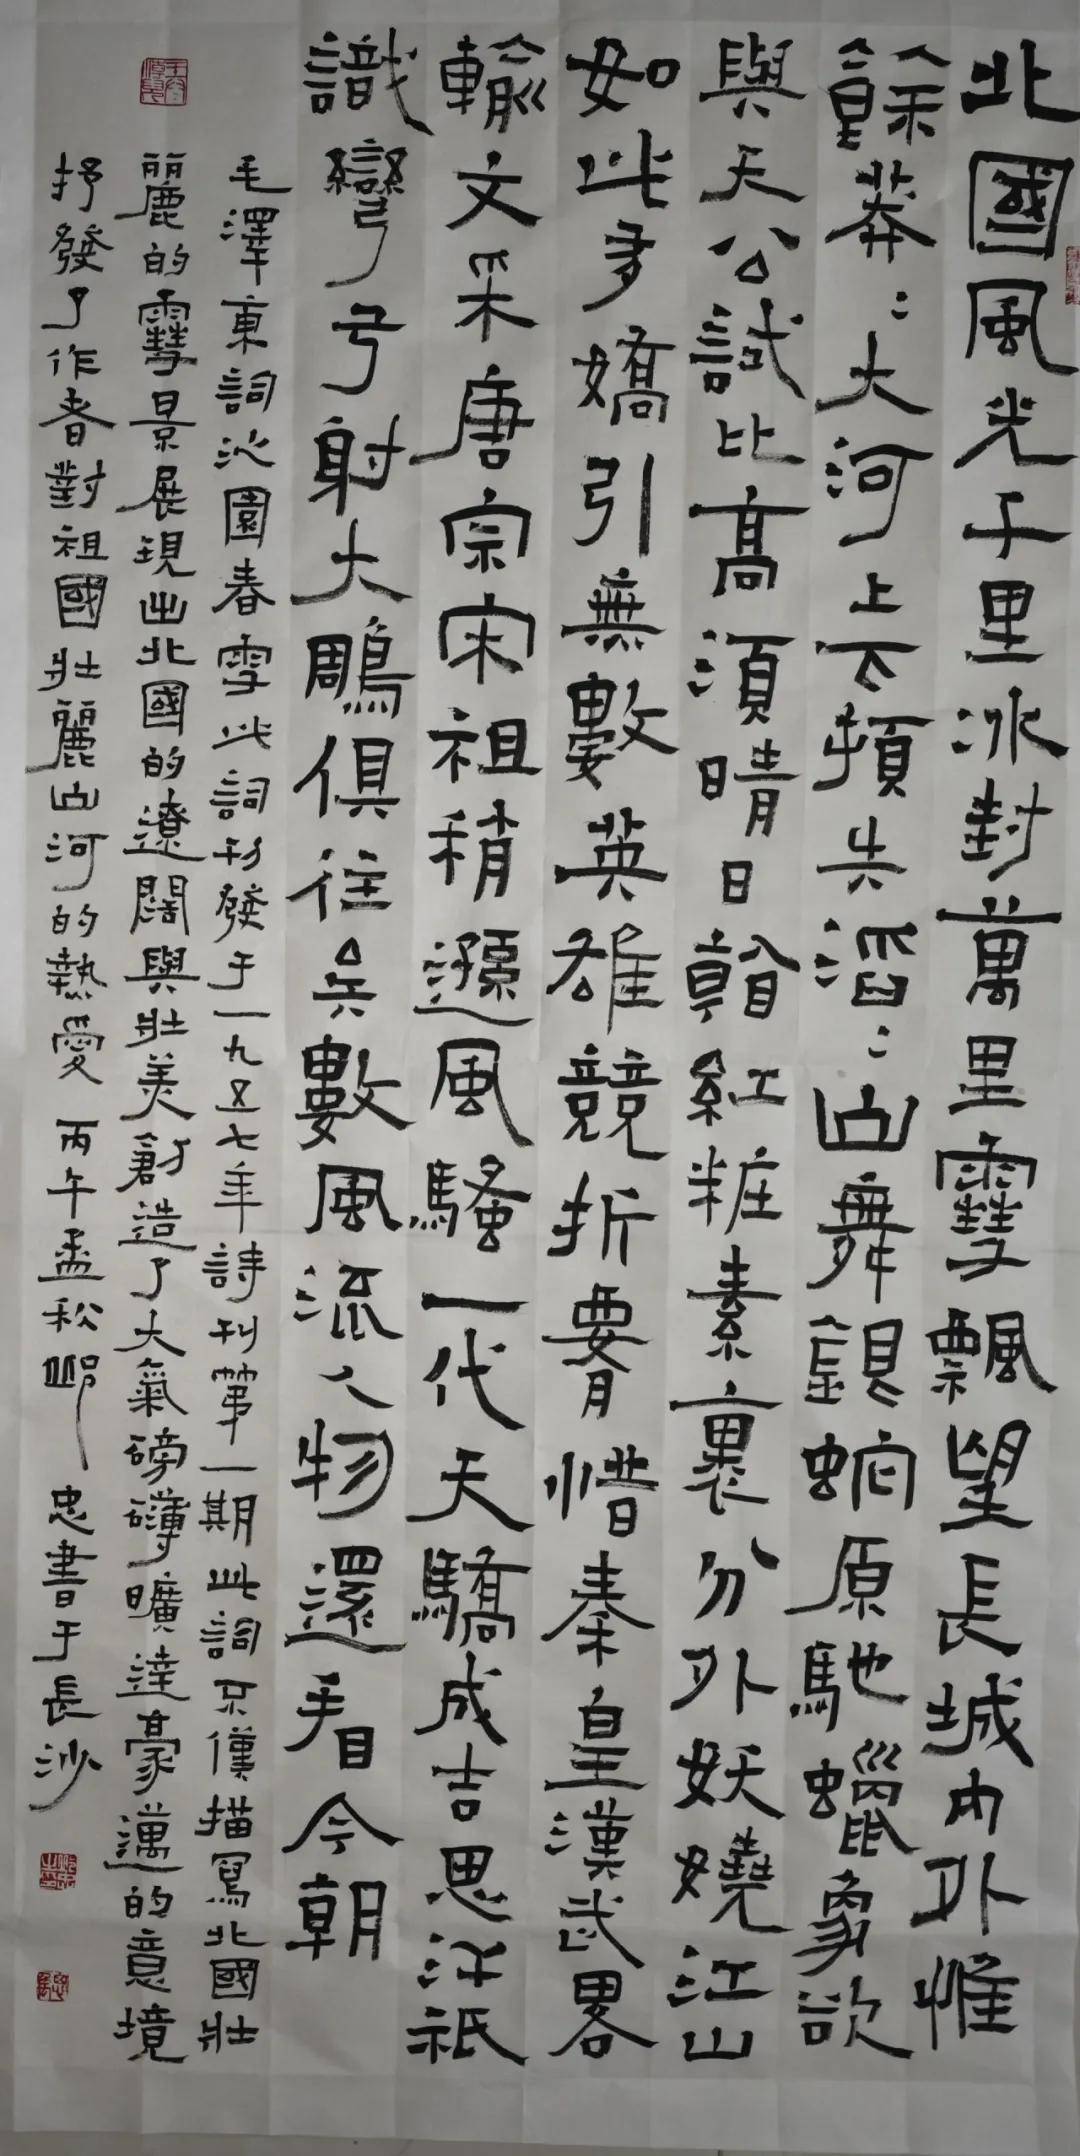 北國風光千里冰封萬里雪飄望長城內外惟
餘莽〻大河上下頓失滔〻山舞銀蛇原馳蠟象欲
與天公試比高須晴日看紅粧素裹分外妖嬈江山
如此多嬌引無數英雄競折要惜秦皇漢武略
輸文采唐宗宋祖稍遜風騷一代天驕成吉思汗祇
識彎弓射大鵰俱往矣數風流人物還看今朝
毛澤東詞沁園春雪此詞刊發于一九五七年詩刊第一期此詞不僅描寫北國壯
麗的雪景展現出北國的遼闊與壯美創造了大氣磅礴曠達豪邁的意境
抒發了作者對祖國壯麗山河的熱愛 丙午孟秋 忠書于長沙